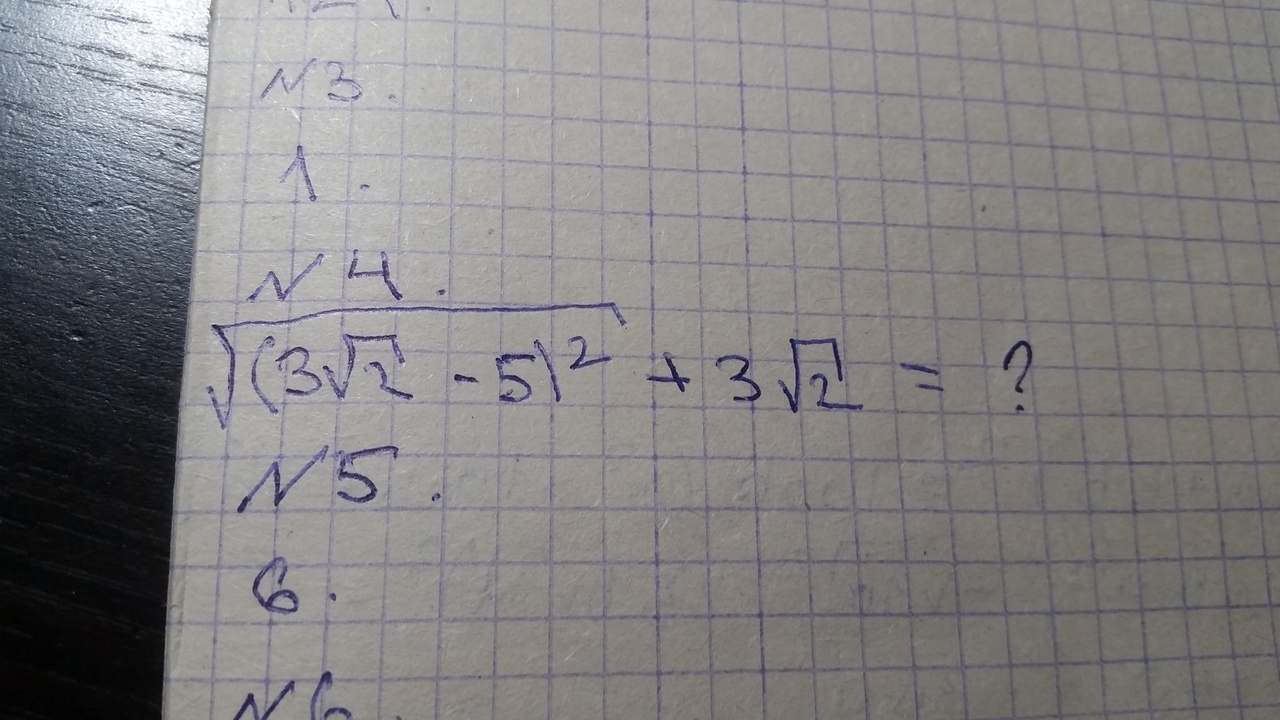 №3.
1.
№4.
√(3√2 - 5)² + 3√2 = ?
№5.
6.
№6.